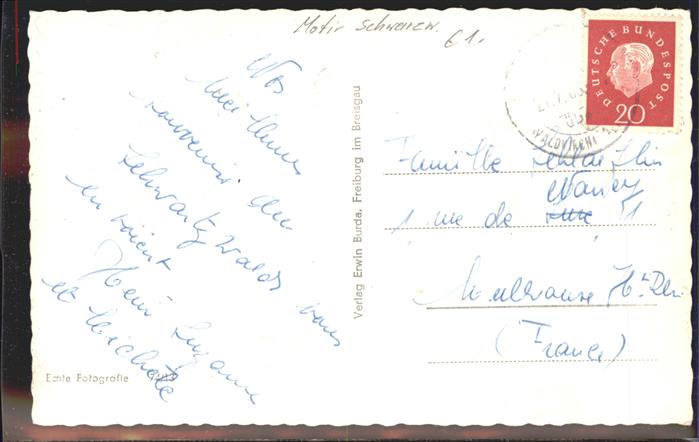 Motiv Schwarzw.
61.
Nos
meilleurs
souvenirs du
Schwartzwalds vous
envoient
Henri Suzanne
et Michele
Echte Fotografie
Verlag Erwin Burda, Freiburg im Breisgau
DEUTSCHE BUNDESPOST
20
WALDKIRCH
Famille
Nancy
1 rue de 11
Mulhouse Ht Rhin
(France)